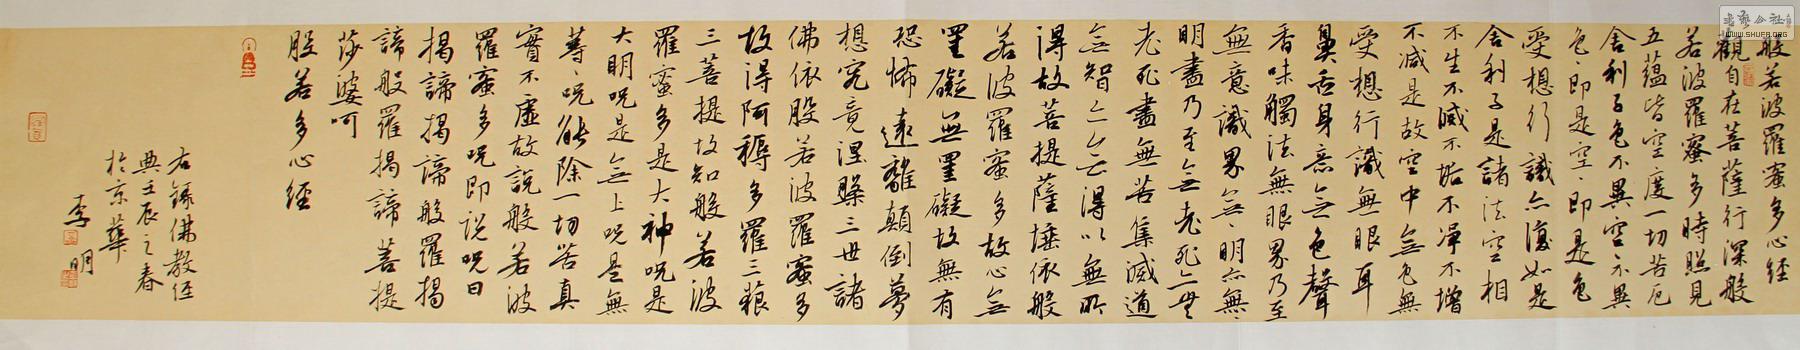 书法公社
WWW.SHUFA.ORG
般若波羅蜜多心經
觀自在菩薩行深般
若波羅蜜多時照見
五蘊皆空度一切苦厄
舍利子色不異空不異
色〻即是空〻即是色
受想行識亦復如是
舍利子是諸法空相
不生不滅不垢不淨不增
不減是故空中無色無
受想行識無眼耳
鼻舌身意無色聲
香味觸法無眼界乃至
無意識界無〻明亦無〻
明盡乃至無老死亦無
老死盡無苦集滅道
無智亦無得以無所
得故菩提薩埵依般
若波羅蜜多故心無
罣礙無罣礙故無有
恐怖遠離顛倒夢
想究竟涅槃三世諸
佛依般若波羅蜜多
故得阿耨多羅三藐
三菩提故知般若波
羅蜜多是大神呪是
大明呪是無上呪是無
等〻呪能除一切苦真
實不虛故說般若波
羅蜜多呪即說呪曰
揭諦揭諦般羅揭
諦般羅揭諦菩提
莎婆呵
般若多心經
右録佛教經
典壬辰之春
於京華
李明